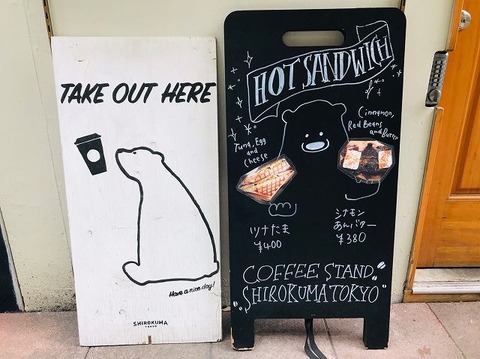 TAKE OUT HERE
Have a nice day!
SHIROKUMA
TOKYO
HOT SANDWICH
Tuna, Egg
and
Cheese
Cinnamon,
Red Beans
and Butter
ツナたま
¥400
シナモン
あんバター
¥380
COFFEE STAND
"SHIROKUMA TOKYO"